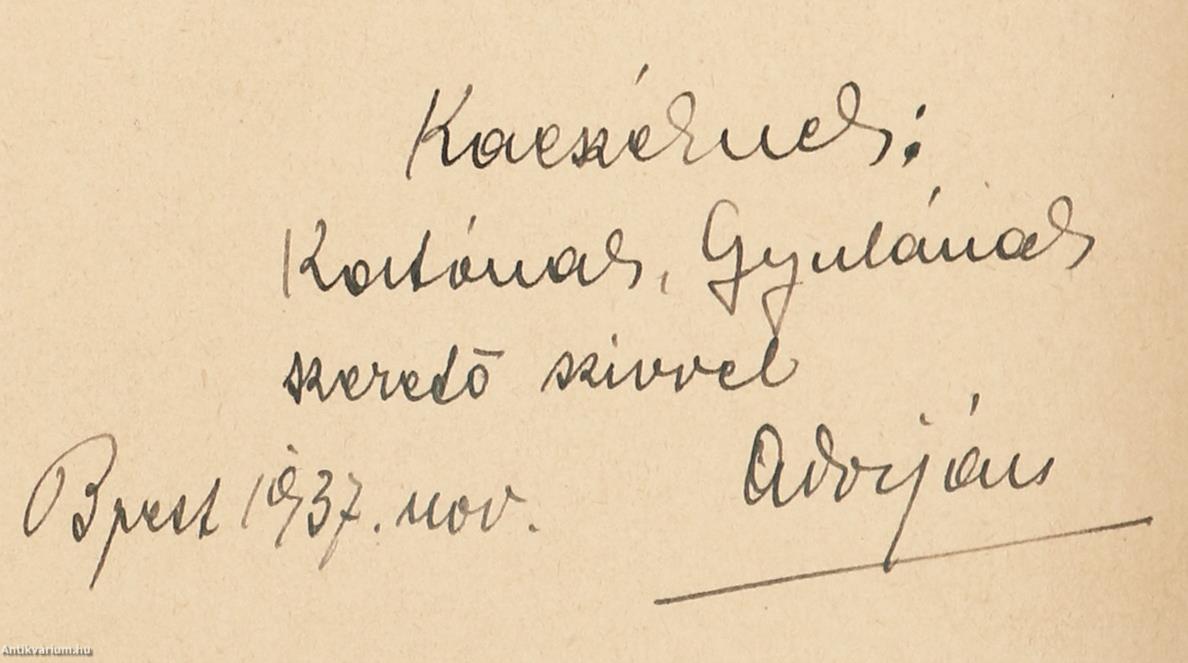 Kaeszéknek:
Katónak, Gyulának
szerető szivvel
Adorján
Bpest 1937. nov.
Antikvarium.hu